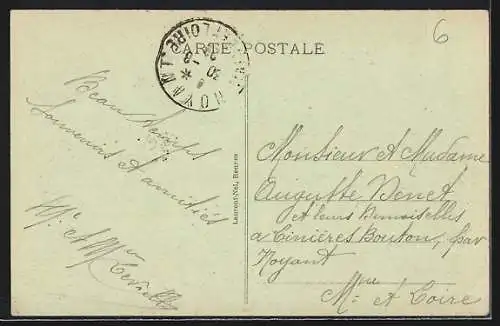 6
CARTE POSTALE
NOYANT
LOIRE
Beau temps
Souvenirs et amitiés
Mr et Mme
Laurent-Nel, Rennes
Monsieur et Madame
Auguste Denet
et leurs Demoiselles
a Linières Bouton, par
Noyant
Mne et Loire